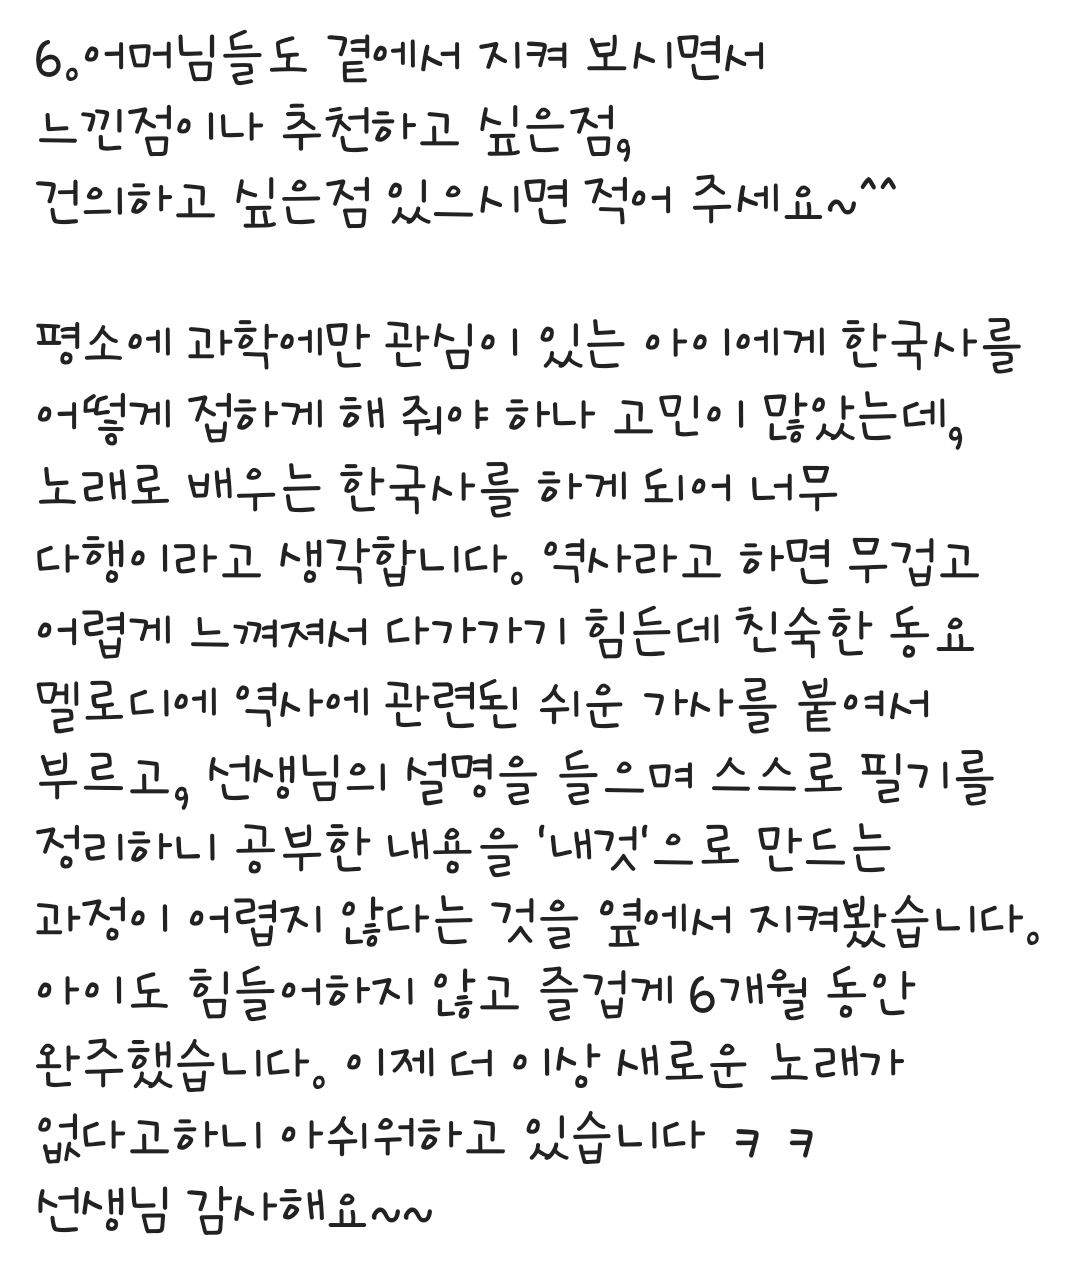 6.어머님들도 곁에서 지켜 보시면서
느낀점이나 추천하고 싶은점,
건의하고 싶은점 있으시면 적어 주세요~^^
평소에 과학에만 관심이 있는 아이에게 한국사를
어떻게 접하게 해 줘야 하나 고민이 많았는데,
노래로 배우는 한국사를 하게 되어 너무
다행이라고 생각합니다. 역사라고 하면 무겁고
어렵게 느껴져서 다가가기 힘든데 친숙한 동요
멜로디에 역사에 관련된 쉬운 가사를 붙여서
부르고, 선생님의 설명을 들으며 스스로 필기를
정리하니 공부한 내용을 '내것'으로 만드는
과정이 어렵지 않다는 것을 옆에서 지켜봤습니다.
아이도 힘들어하지 않고 즐겁게 6개월 동안
완주했습니다. 이제 더 이상 새로운 노래가
없다고하니 아쉬워하고 있습니다 ㅋㅋ
선생님 감사해요~~